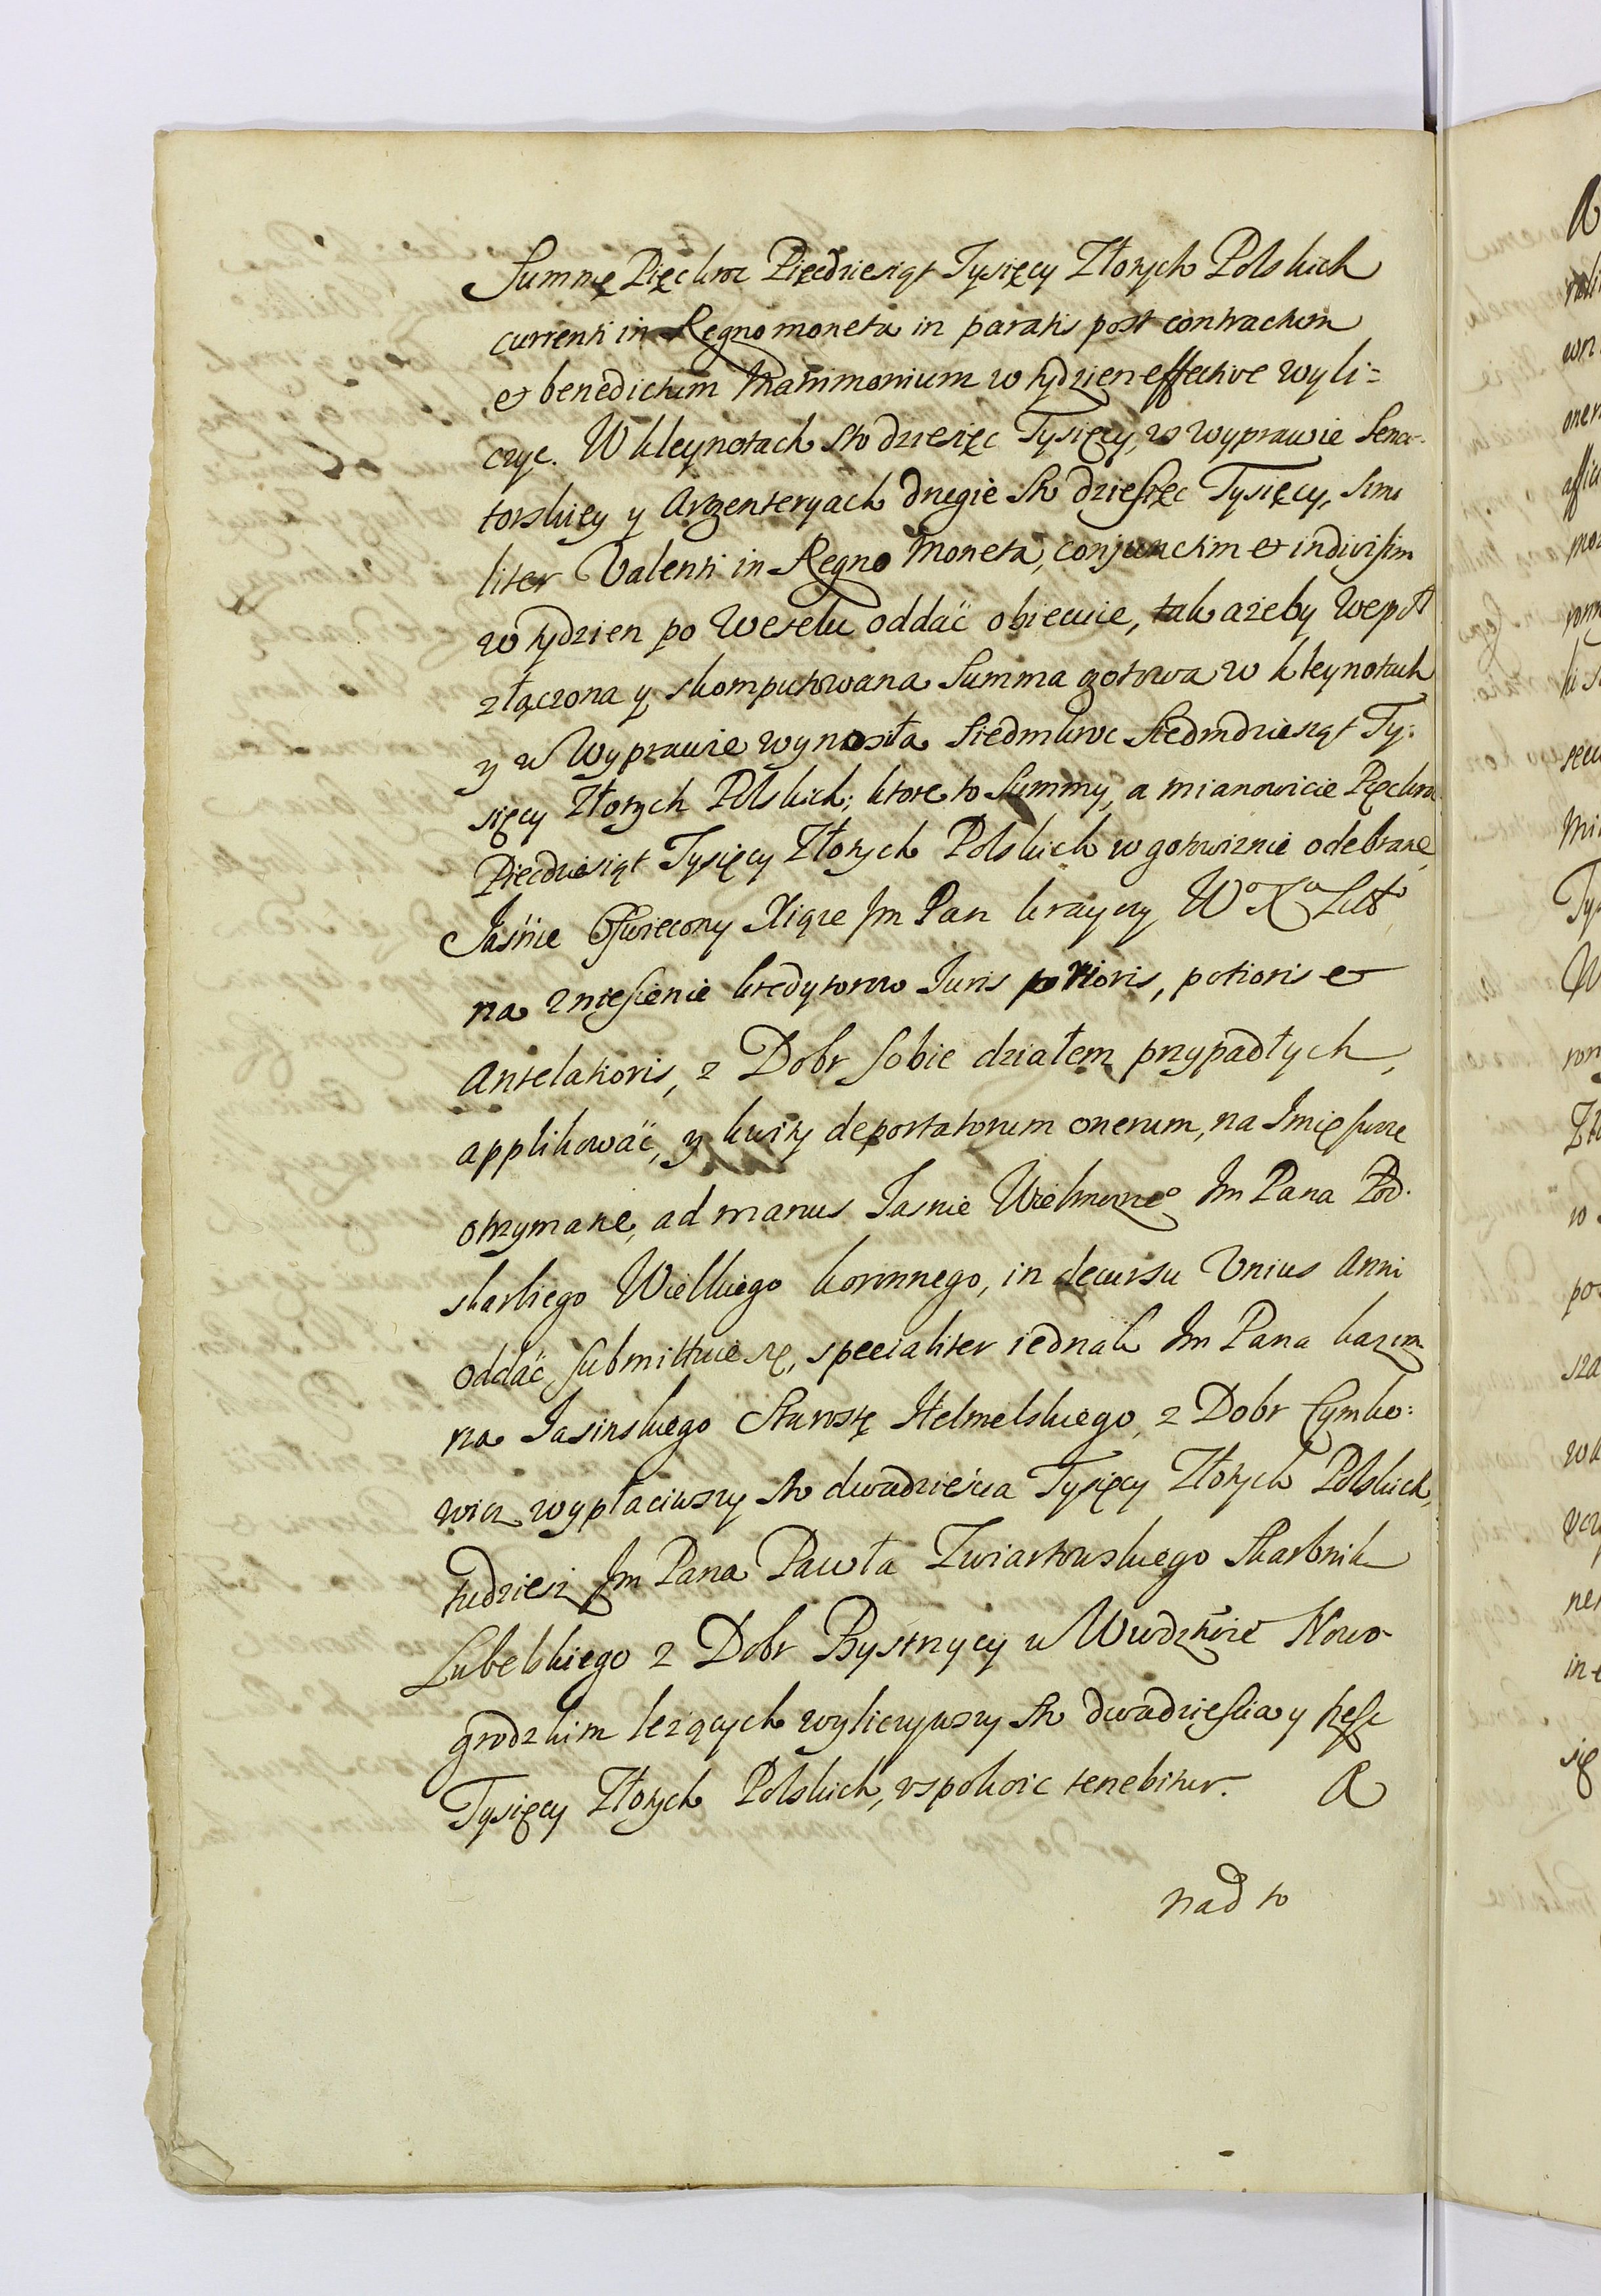 Summę Pięckroc Pięcdziesiąt Tysięcy Złotych Polskich
currenti in Regno moneta in paratis post contractum
et benedictum Matrimonium w tydzien effective wyli=
czyc. W kleynotach sto dziesięc Tysięcy, w wyprawie Sena-
torskiey y Argenteryach drugie sto dziesięc Tysięcy, simi
liter Valenti in Regno Moneta, conjunctim et indivisim
w tydzien po Weselu oddać obiecuie, tak ażeby wespoł
złączona y skomputowana Summa gotowa w kleynotach
y w Wyprawie wynosiła Siedmkroc Siedmdziesiąt Ty:
sięcy Złotych Polskich; ktore to Summy, a mianowicie Pięckroc
Pięcdziesiąt Tysięcy Złotych Polskich w gotowiznie odebrane
Jaśnie Oswiecony Xiąze Jm Pan krayczy Wo Xa Litto
na zniesienie kredytorow Juris prioris, potioris et
antelationis, z Dobr sobie działem przypadłych,
applikować, y kwity deportatorum onerum, na Imię swe
otrzymane, ad manus Jasnie Wielmoznego Jm Pana Pod.
skarbiego Wielkiego koronnego, in decursu Unius Anni
oddać submittuie się, specialiter iednak Jm Pana kazim
rza Jasinskiego Starostę Helmelskiego, z Dobr Cymko:
wicz wypłaciwszy sto dwadzieścia Tysięcy Złotych Polskich,
tudziesz Jm Pana Pawła Zwiartowskiego Skarbnik
Lubelskiego z Dobr Bystrzycy w Wwdztwie Nowo-
grodzkim leżących wyliczywszy sto dwadziescia y szesc
Tysięcy Złotych Polskich, uspokoic tenebitur. A
nad to